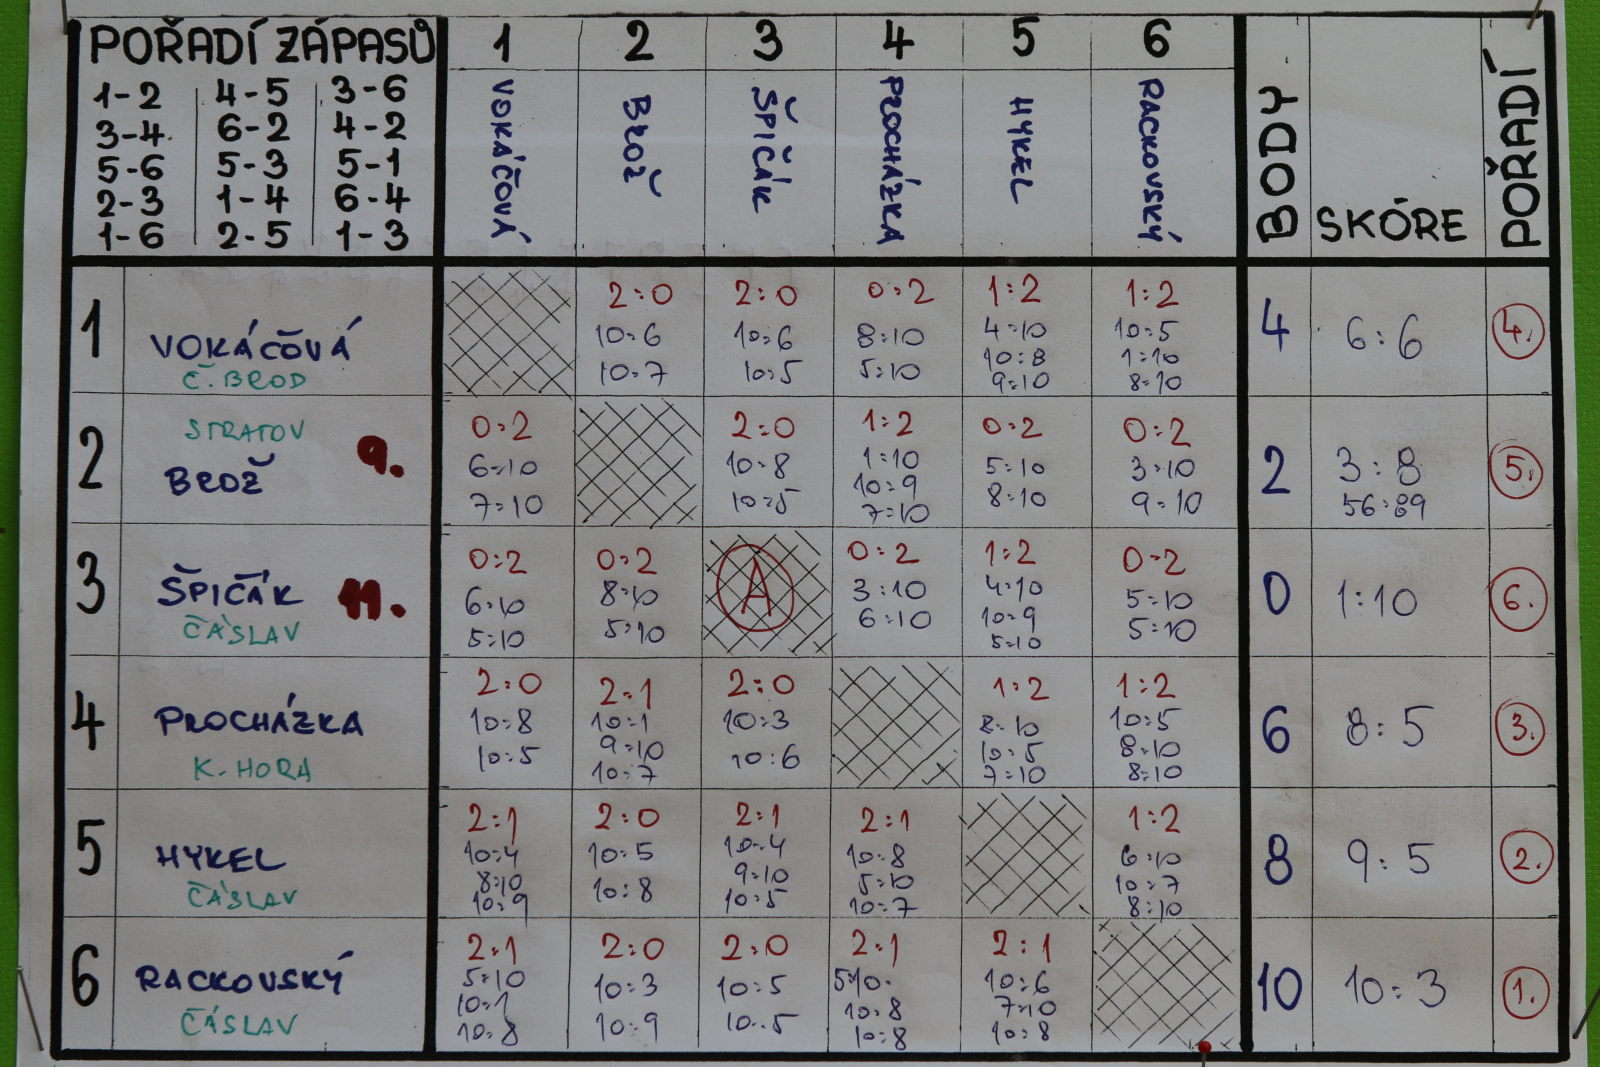 POŘADÍ ZÁPASŮ 1 2 3 4 5 6 BODY SKÓRE POŘADÍ
1-2 4-5 3-6
3-4 6-2 4-2
5-6 5-3 5-1
2-3 1-4 6-4
1-6 2-5 1-3
VOKÁČOVÁ BROŽ ŠPIČÁK PROCHÁZKA HYKEL RACKOVSKÝ
1 VOKÁČOVÁ 2:0 2:0 0:2 1:2 1:2 4 6:6 4.
10:6 10:6 8:10 4:10 10:5
10:7 10:5 5:10 10:8 1:10
Č. BROD 9:10 8:10
STRATOV
2 BROŽ 9. 0:2 2:0 1:2 0:2 0:2 2 3:8 5.
6:10 10:8 1:10 5:10 3:10
7:10 10:5 10:9 8:10 9:10 56:89
7:10
3 ŠPIČÁK 11. 0:2 0:2 A 0:2 1:2 0:2 0 1:10 6.
6:10 8:10 3:10 4:10 5:10
5:10 5:10 6:10 10:9 5:10
ČÁSLAV 5:10
4 PROCHÁZKA 2:0 2:1 2:0 1:2 1:2 6 8:5 3.
10:8 10:1 10:3 8:10 10:5
10:5 9:10 10:6 10:5 8:10
K. HORA 10:7 7:10 8:10
5 HYKEL 2:1 2:0 2:1 2:1 1:2 8 9:5 2.
10:4 10:5 10:4 10:8 6:10
8:10 10:8 9:10 5:10 10:7
ČÁSLAV 10:9 10:5 10:7 8:10
6 RACKOVSKÝ 2:1 2:0 2:0 2:1 2:1 10 10:3 1.
5:10 10:3 10:5 5:10 10:6
10:1 10:9 10:5 10:8 7:10
ČÁSLAV 10:8 10:8 10:8